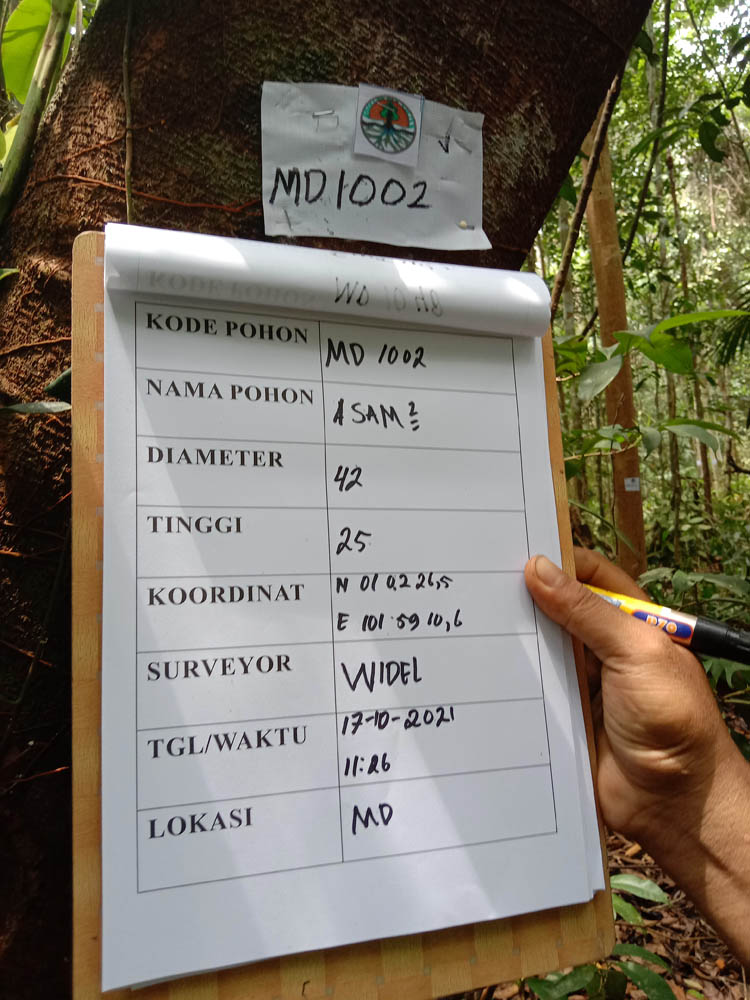 MD 1002
KODE POHON
KODE POHON MD 1002
NAMA POHON ASAM²
DIAMETER 42
TINGGI 25
KOORDINAT N 01 02 26,5
E 101 59 10,6
SURVEYOR WIDEL
TGL/WAKTU 17-10-2021
11:26
LOKASI MD